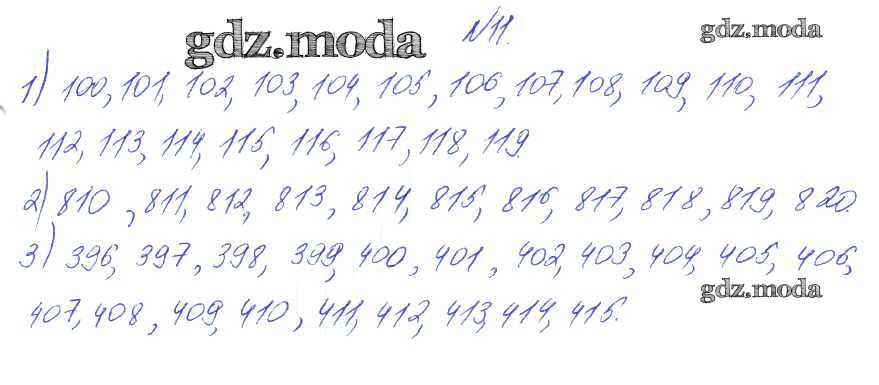 gdz.moda №11. gdz.moda
1) 100, 101, 102, 103, 104, 105, 106, 107, 108, 109, 110, 111,
112, 113, 114, 115, 116, 117, 118, 119.
2) 810, 811, 812, 813, 814, 815, 816, 817, 818, 819, 820.
3) 396, 397, 398, 399, 400, 401, 402, 403, 404, 405, 406,
gdz.moda
407, 408, 409, 410, 411, 412, 413, 414, 415.